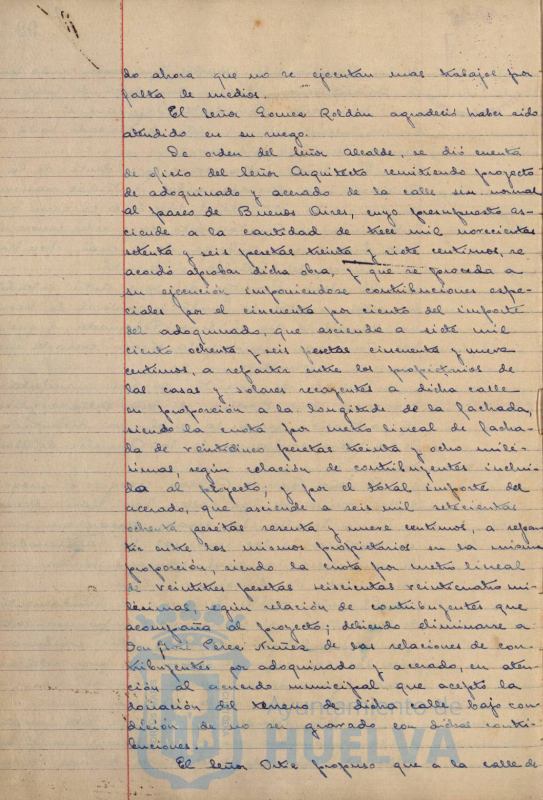 do ahora que no se ejecutan mas trabajos por
falta de medios.
El Señor Gomez Roldán agradeció haber sido
atendido en su ruego.
De orden del Señor Alcalde, se dió cuenta
de oficio del Señor Arquitecto remitiendo proyecto
de adoquinado y acerado de la calle sin normal
al paseo de Buenos Aires, cuyo presupuesto as-
ciende a la cantidad de trece mil novecientas
setenta y seis pesetas treinta y siete centimos, se
acordó aprobar dicha obra, y que se proceda a
su ejecución imponiendose contribuciones espe-
ciales por el cincuenta por ciento del importe
del adoquinado, que asciende a siete mil
ciento ochenta y seis pesetas cincuenta y nueve
centimos, a repartir entre los propietarios de
las casas y solares recayentes a dicha calle
en proporción a la longitud de la fachada,
siendo la cuota por metro lineal de facha-
da de veinticinco pesetas treinta y ocho milé-
simas, según relación de contribuyentes inclui-
da al proyecto; y por el total importe del
acerado, que asciende a seis mil setecientas
ochenta pesetas sesenta y nueve centimos, a repar-
tir entre los mismos propietarios en la misma
proporción, siendo la cuota por metro lineal
de veintitres pesetas seiscientas veinticuatro mi-
lésimas, según relación de contribuyentes que
acompaña al proyecto; debiendo eliminarse a
Don José Perea Nuñez de las relaciones de con-
tribuyentes por adoquinado y acerado, en aten-
ción al acuerdo municipal que aceptó la
donación del terreno de dicha calle bajo con-
dición de no ser gravado con dichas contri-
buciones.
El Señor Ortiz propuso que a la calle de
Ayuntamiento de
HUELVA